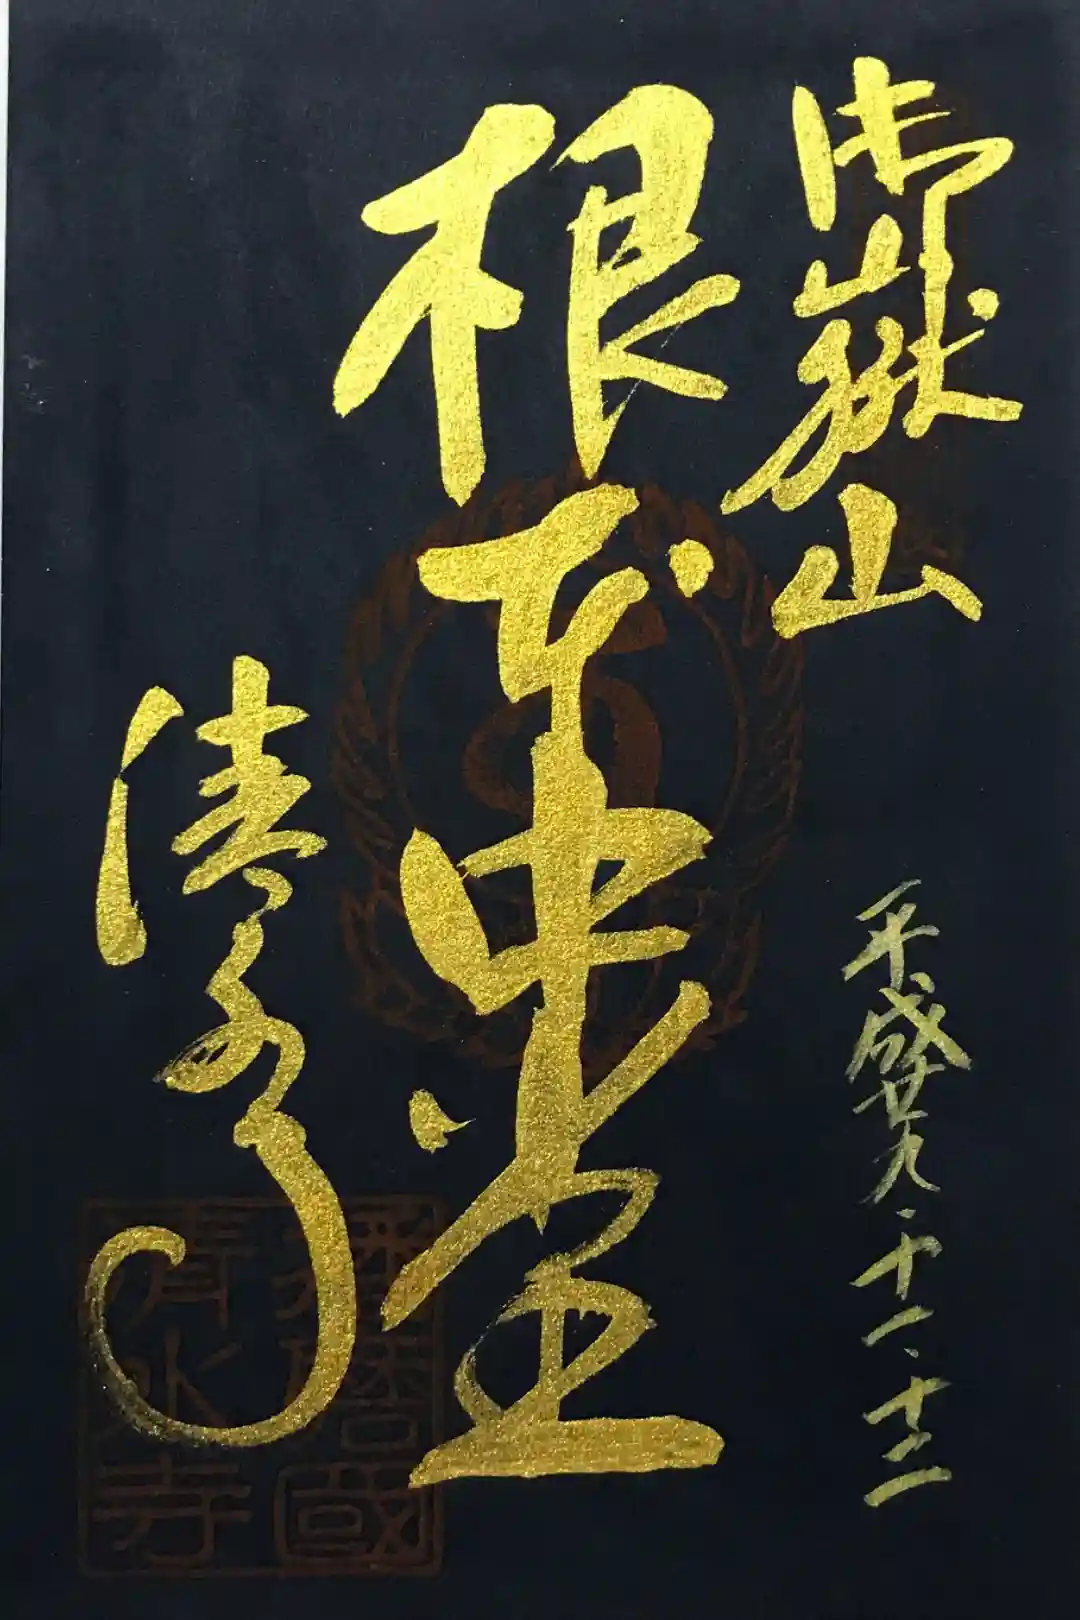 御嶽山
平成廿九、十一、十二
根本中堂
清水寺
播磨國
清水寺